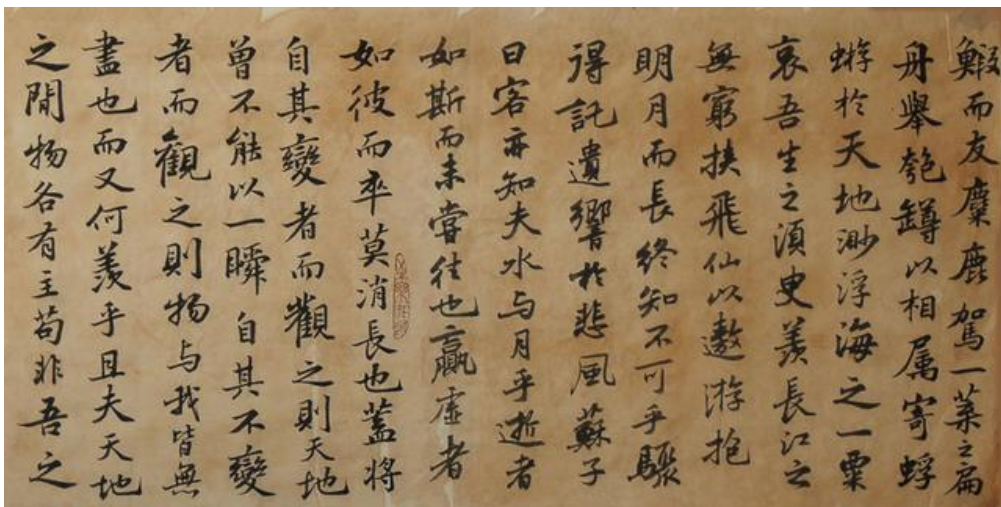 鰕而友麋鹿駕一葉之扁
舟舉匏罇以相属寄蜉
蝣於天地渺浮海之一粟
哀吾生之須臾羨長江之
無窮挟飛仙以遨游抱
明月而長終知不可乎驟
得託遺響於悲風蘇子
曰客亦知夫水与月乎逝者
如斯而未嘗往也贏虛者
如彼而卒莫消長也蓋将
自其變者而觀之則天地
曾不能以一瞬自其不變
者而觀之則物与我皆無
盡也而又何羨乎且夫天地
之間物各有主苟非吾之